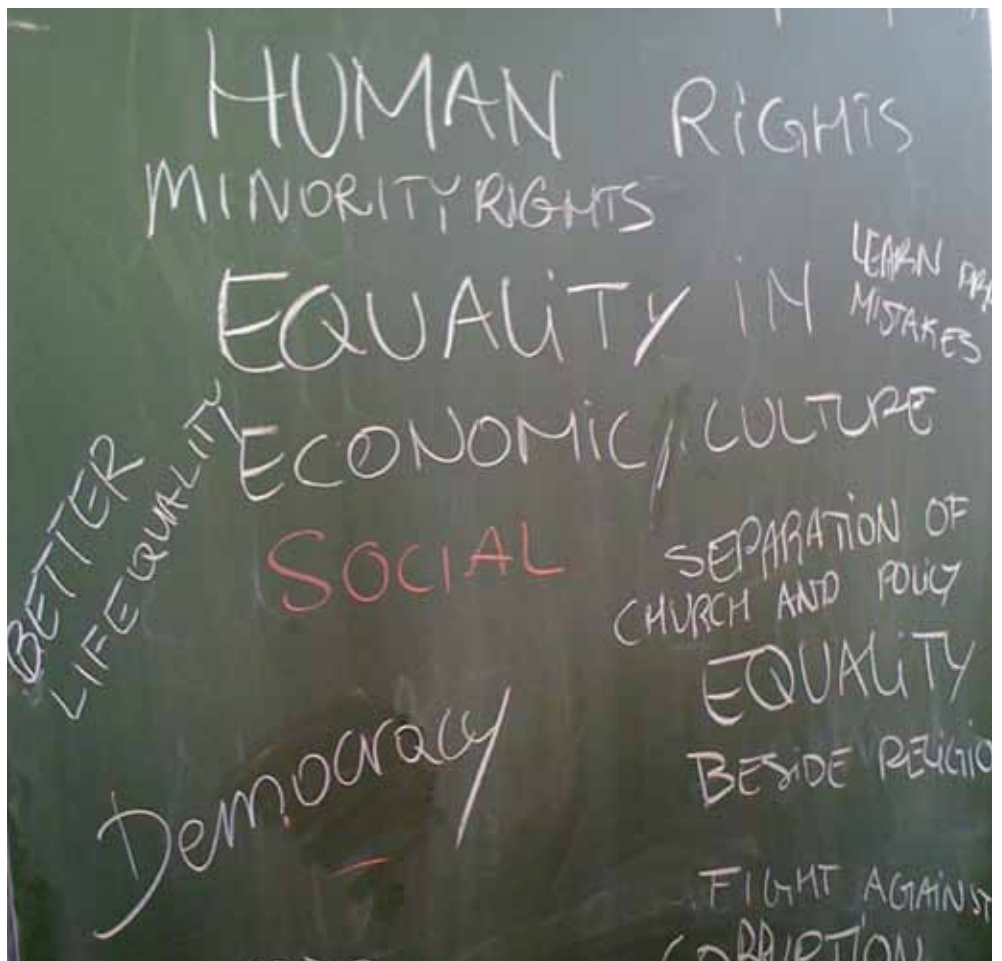 HUMAN RIGHTS
MINORITY RIGHTS
EQUALITY IN
LEARN
MISTAKES
ECONOMIC / CULTURE
BETTER
LIFE QUALITY
SOCIAL
SEPARATION OF
CHURCH AND POLICY
EQUALITY
BESIDE RELIGIO
Democracy
FIGHT AGAINST
CORRUPTION